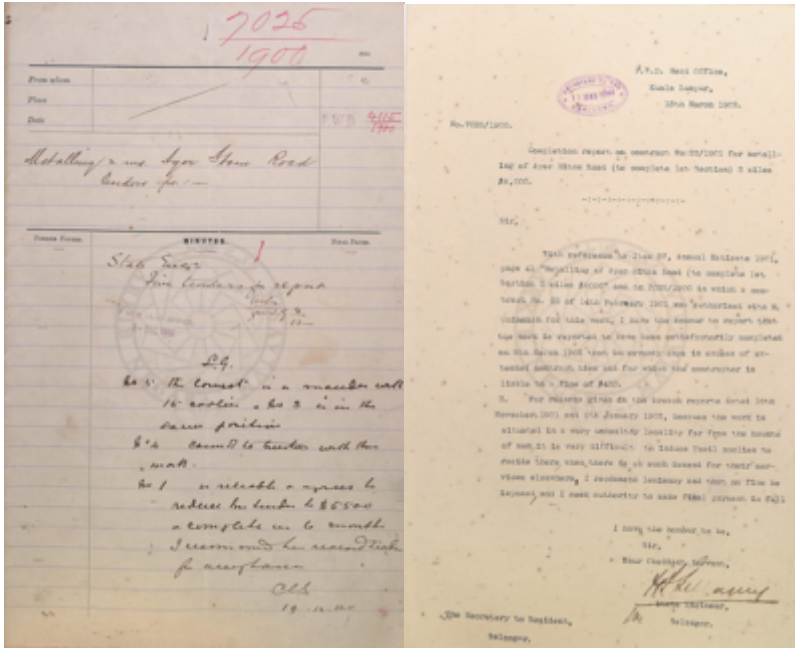 7025
1900
From whom
Place
Date
P.W.D. 4115
1900
Metalling 2 mls Ayer Itam Road
tenders for :—
Former Paper.
MINUTES.
State Engr
Five tenders for report
S.G.
No 5 the lowest is a man with
15 coolies & No 3 is in the
same position
No 4 cannot be trusted with this
work.
No 1 is reliable & agrees to
reduce his tender to $5500
& complete in 6 months
I recommend his
for acceptance
19.12.00
P.W.D. Head Office,
Kuala Lumpur,
15th March 1902.
No.7025/1900.
Completion report on contract No.22/1901 for metall-
ing of Ayer Hitam Road (to complete 1st Section) 2 miles
$6,000.
Sir,
With reference to Item 27, Annual Estimate 1901,
page 41 "Metalling of Ayer Hitam Road (to complete 1st
Section 2 miles $6000" and to 7025/1900 in which a con-
tract No. 22 of 14th February 1901 was authorised with
for this work, I have the honour to report that
the work is reported to have been satisfactorily completed
on 8th March 1902 that being days in excess of ex-
tended contract time and for which the contractor is
liable to a fine of
2. For reasons given in the branch reports dated
November 1901 and 8th January 1902, because the work is
situated in a very unhealthy locality far from the haunts
of men, it is very difficult to induce Tamil coolies to
reside there when there is so much demand for their ser-
vices elsewhere, I recommend leniency and that no fine be
imposed and I seek authority to make final payment in full
I have the honour to be,
Sir,
Your Obedient Servant,
State Engineer,
Selangor.
The Secretary to Resident,
Selangor.